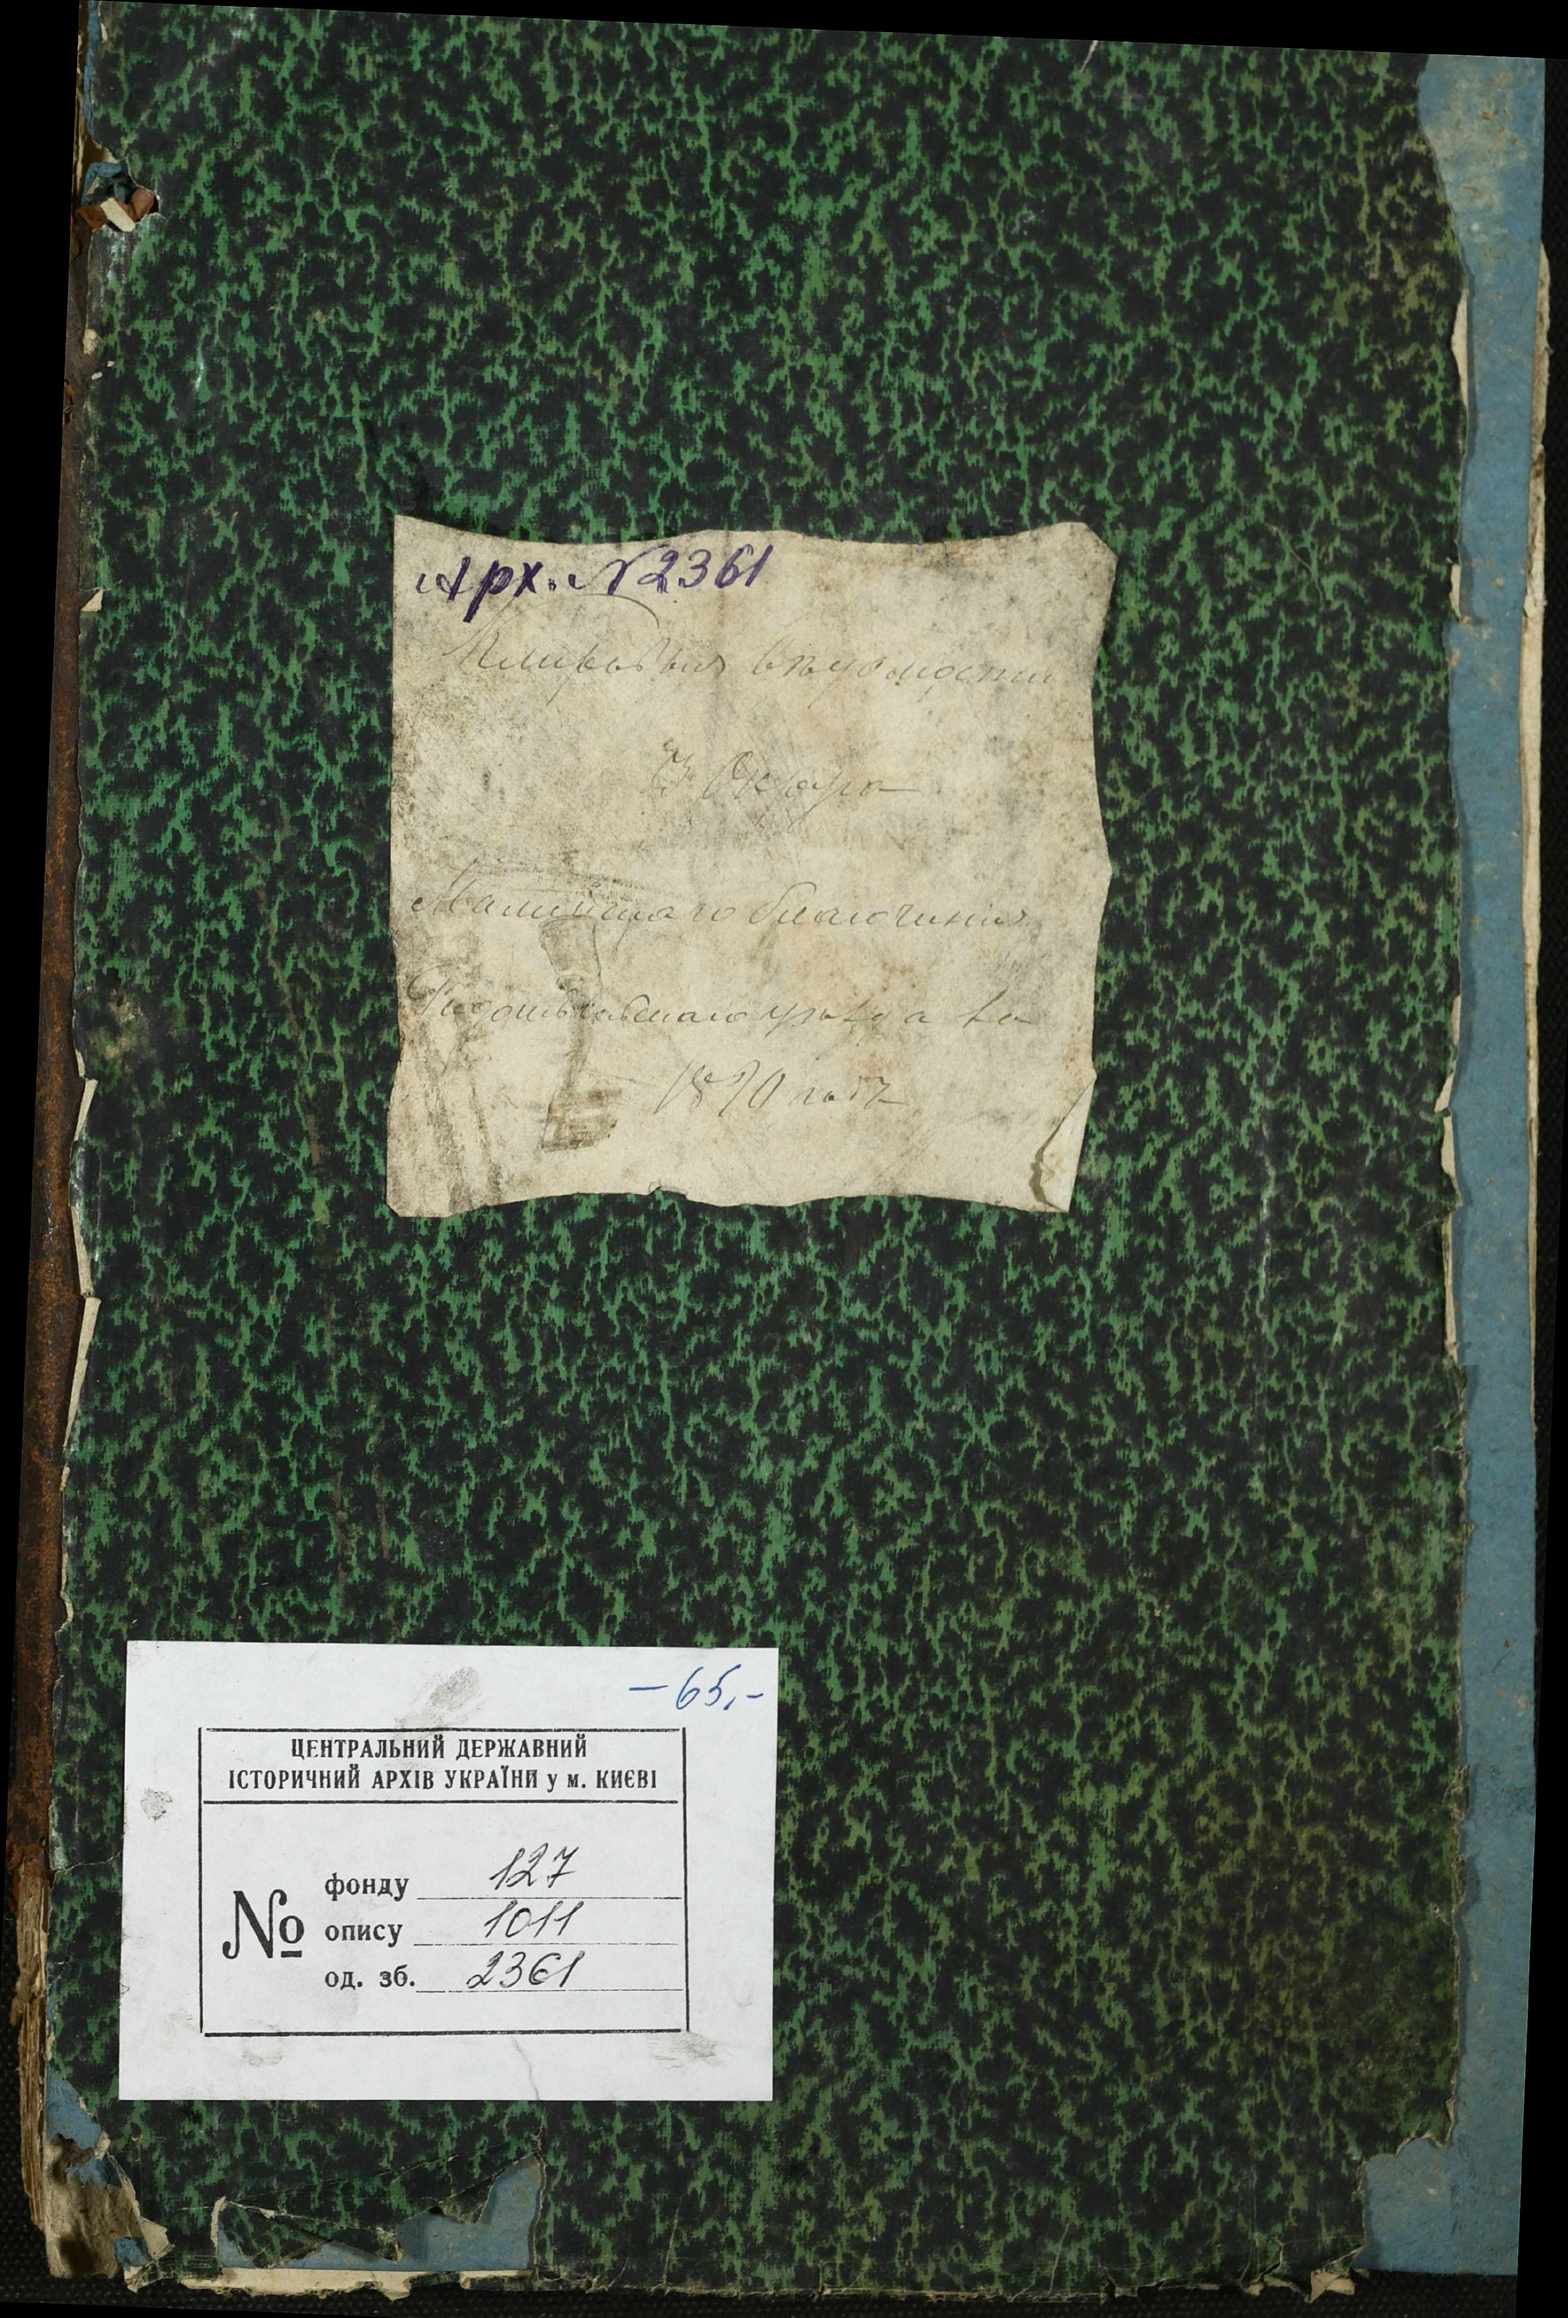 Арх. № 2361
Клировыя вѣдомости
3 Округа
благочинія
уѣзда за
1870 годъ
-65.-
ЦЕНТРАЛЬНИЙ ДЕРЖАВНИЙ
ІСТОРИЧНИЙ АРХІВ УКРАЇНИ у м. КИЄВІ
№
фонду 127
опису 1011
од. зб. 2361